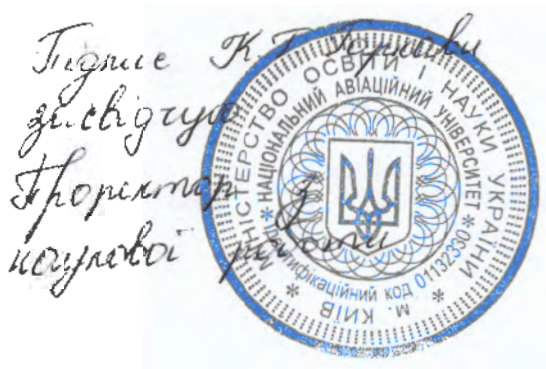 Підпис К.Г.
засвідчую
Проректор з
наукової роботи
* МІНІСТЕРСТВО ОСВІТИ І НАУКИ УКРАЇНИ * М. КИЇВ
* НАЦІОНАЛЬНИЙ АВІАЦІЙНИЙ УНІВЕРСИТЕТ *
Ідентифікаційний код 01132330